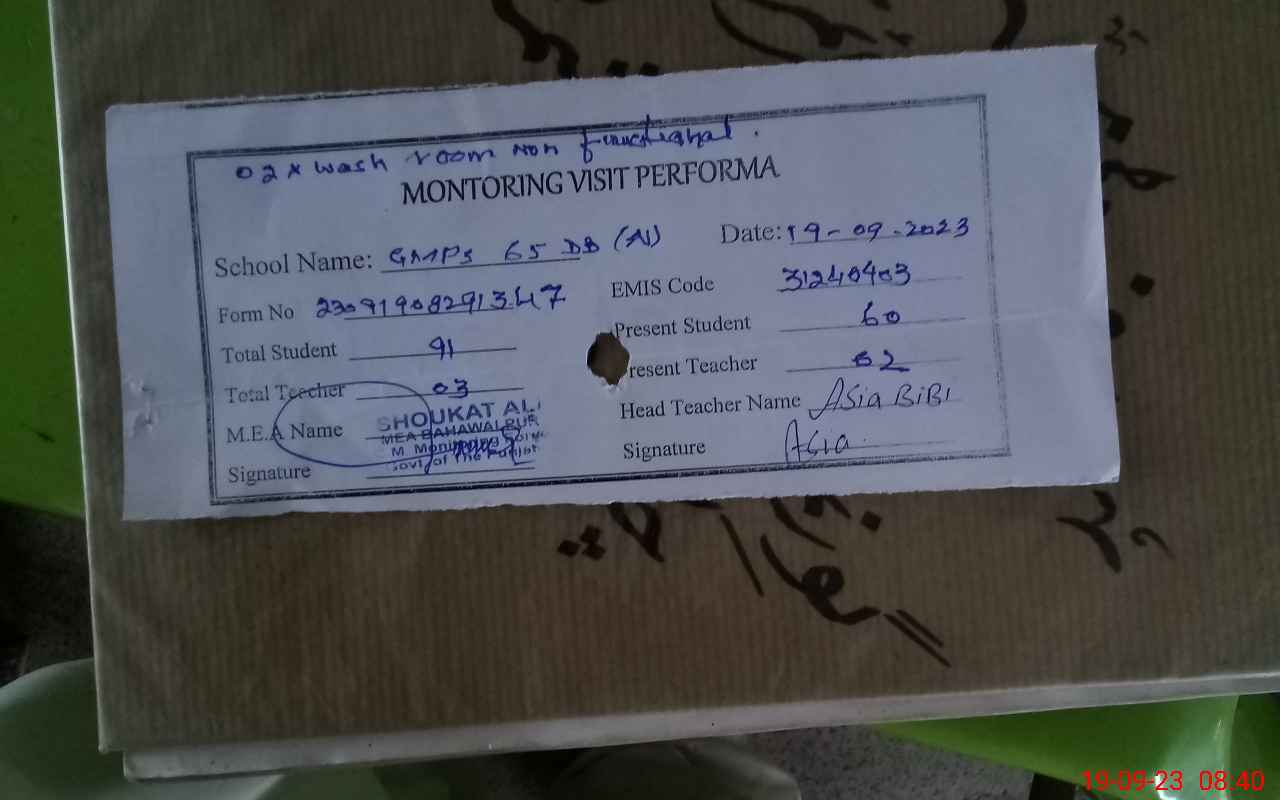 02 x wash room non functional.
MONTORING VISIT PERFORMA
School Name: GMPS 65 DB (N) Date: 19-09-2023
Form No 23091908291347 EMIS Code 31240403
Total Student 91 Present Student 60
Total Teecher 03 resent Teacher 02
M.E.A Name SHOUKAT ALI Head Teacher Name Asia BiBi
MEA BAHAWALPUR
M. Monitoring
Govt of The Punjab
Signature Signature Asia
19-09-23 08:40